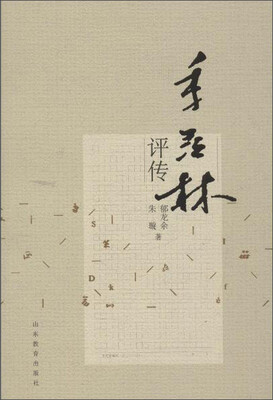 季羡林
评传
郁龙余
朱璇
著
S
Dk
山东教育出版社